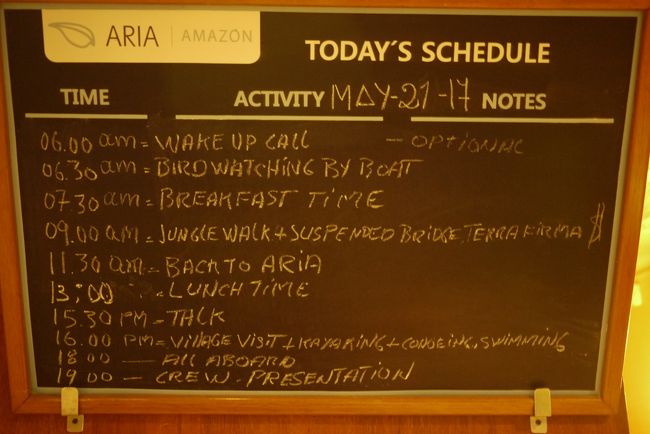 ARIA | AMAZON
TODAY´S SCHEDULE
TIME ACTIVITY MAY-21-17 NOTES
06.00 am = WAKE UP CALL - OPTIONAL
06.30 am = BIRDWATCHING BY BOAT
07.30 am = BREAKFAST TIME
09.00 am = JUNGLE WALK + SUSPENDED BRIDGE, TERRA FIRMA
11.30 am = BACK TO ARIA
13:00 = LUNCH TIME
15.30 PM = TALK
16.00 PM = VILLAGE VISIT + KAYAKING + CONOEING, SWIMMING
18 00 — ALL ABOARD
19 00 — CREW - PRESENTATION